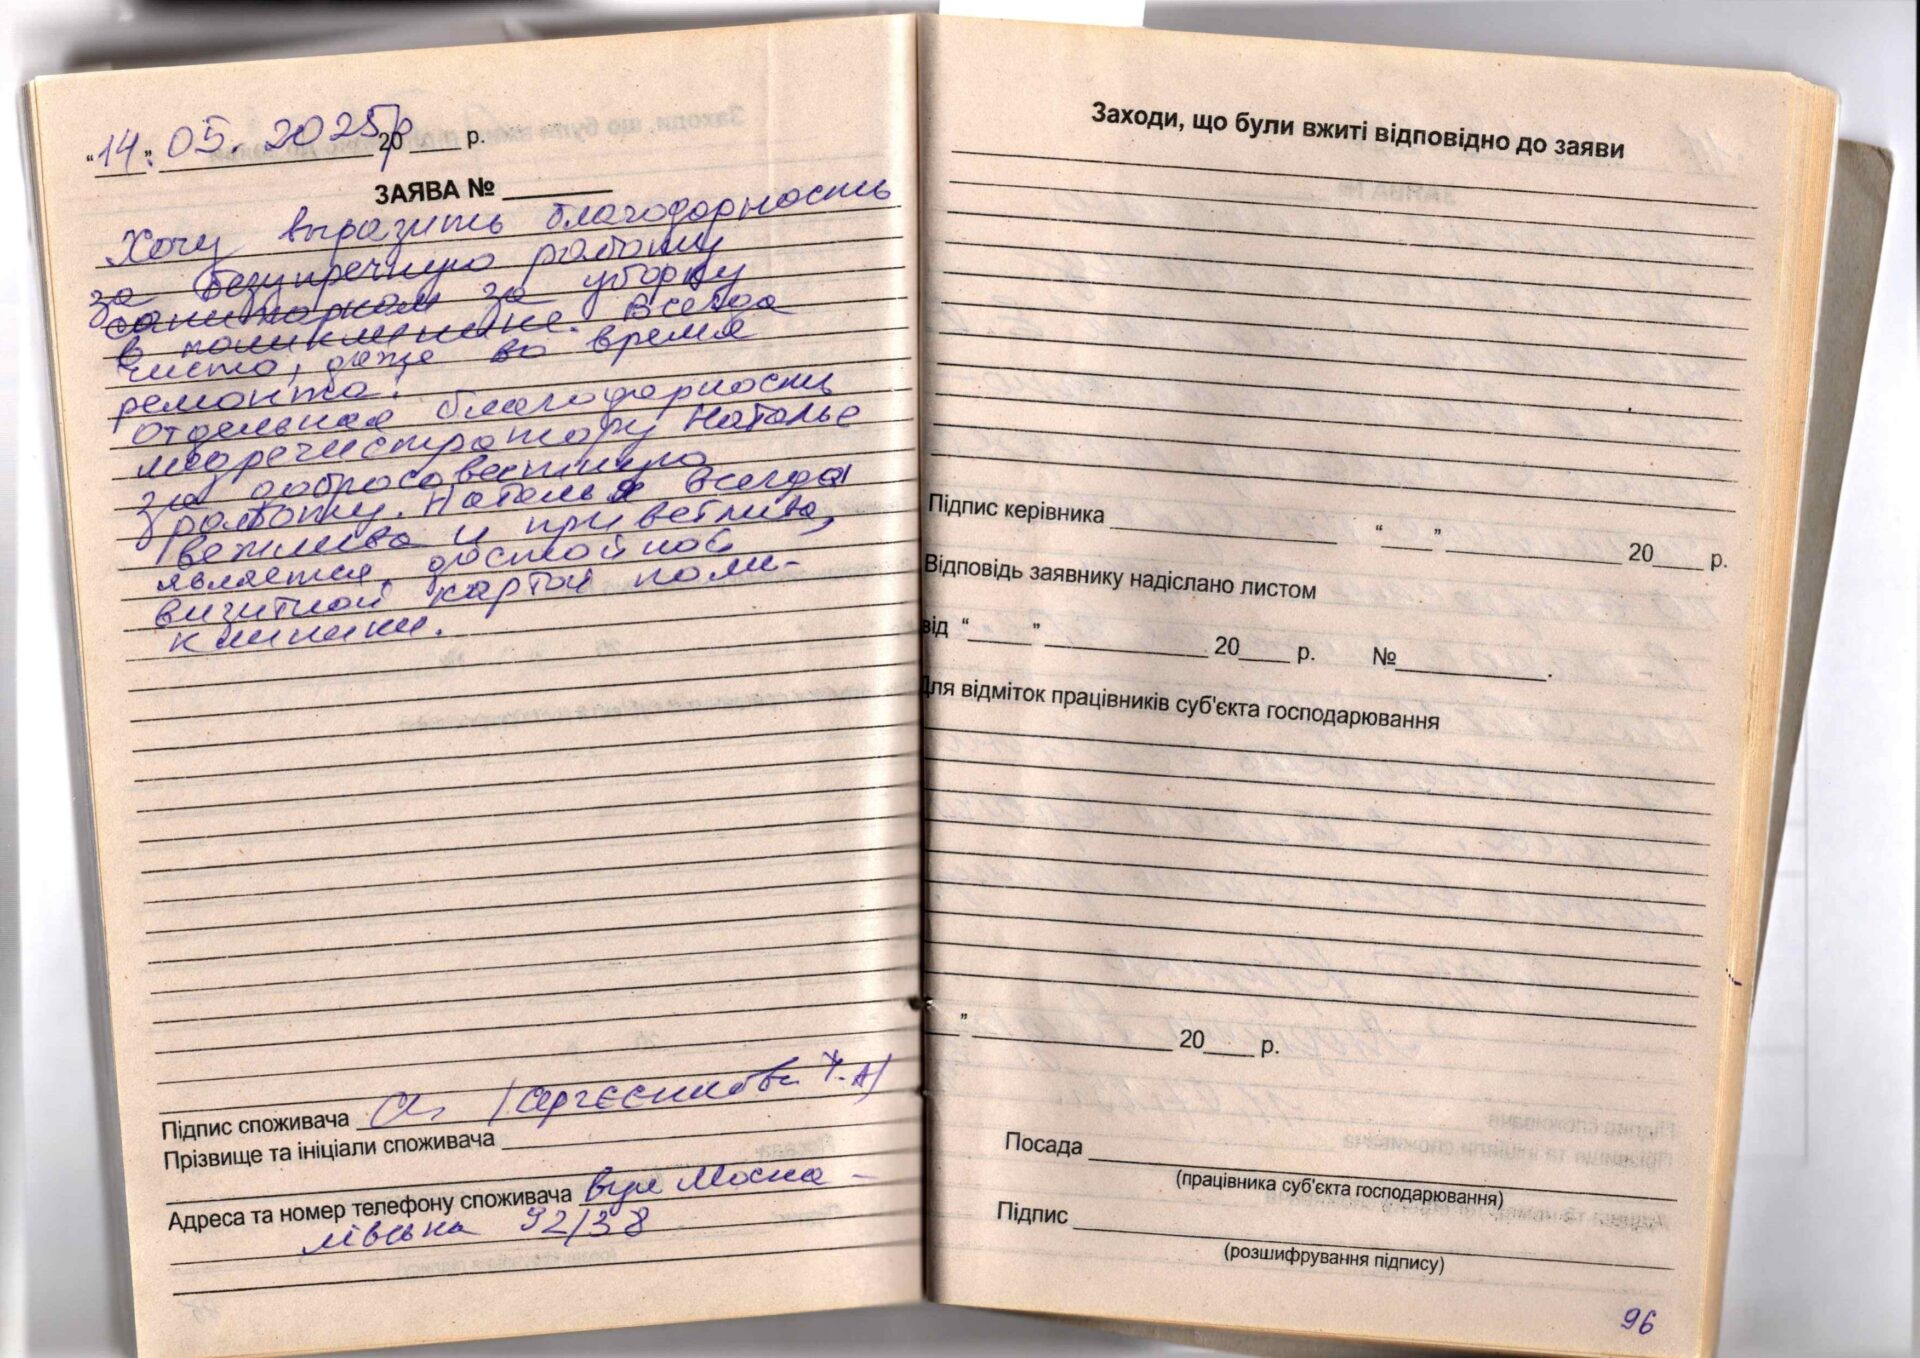 "14" 05. 2025р 20___ р.
ЗАЯВА № ______
Хочу выразить благодарность
за безупречную работу
санитаркам за уборку
в поликлинике. Всегда
чисто, даже во время
ремонта!
Отдельная благодарность
медрегистратору Наталье
за добросовестную
работу. Наталья всегда
вежлива и приветлива,
является достойной
визитной картой поли-
клиники.
Підпис споживача
Прізвище та ініціали споживача
Адреса та номер телефону споживача вул Моска-
лівська 92/38
Заходи, що були вжиті відповідно до заяви
Підпис керівника ______ "___" ______ 20___ р.
Відповідь заявнику надіслано листом
від "____" ______ 20___ р. №______.
Для відміток працівників суб'єкта господарювання
" ______ 20___ р.
Посада ______
(працівника суб'єкта господарювання)
Підпис ______
(розшифрування підпису)
96